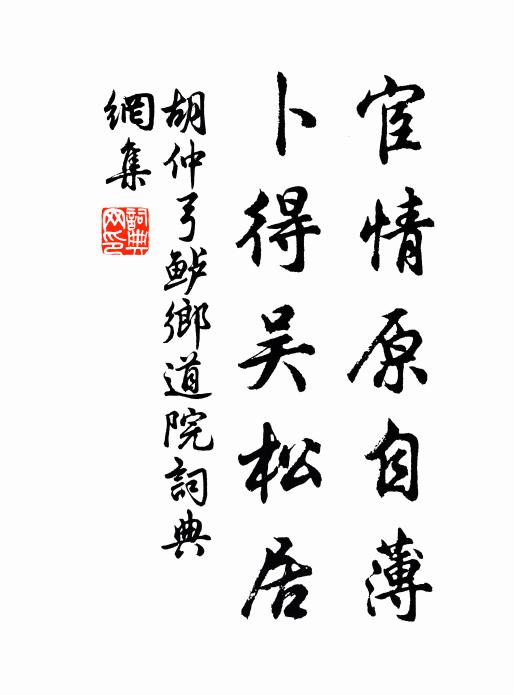 宦情原自薄
卜得吴松居
胡仲弓鲈鄉道院詞典
網集
詞典网印